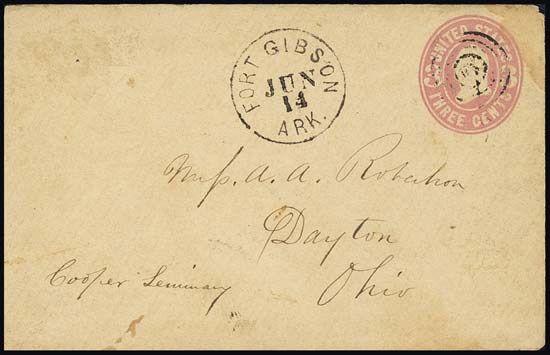 FORT GIBSON
JUN
14
ARK.
UNITED STATES
THREE CENTS
Miss. A. A. Robertson
Dayton
Ohio
Cooper Seminary